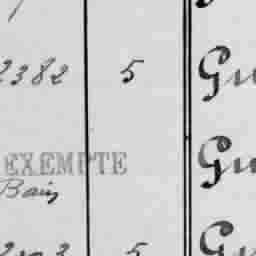 2382 5 Gu
EXEMPTE Gu
Bain
5 Gu